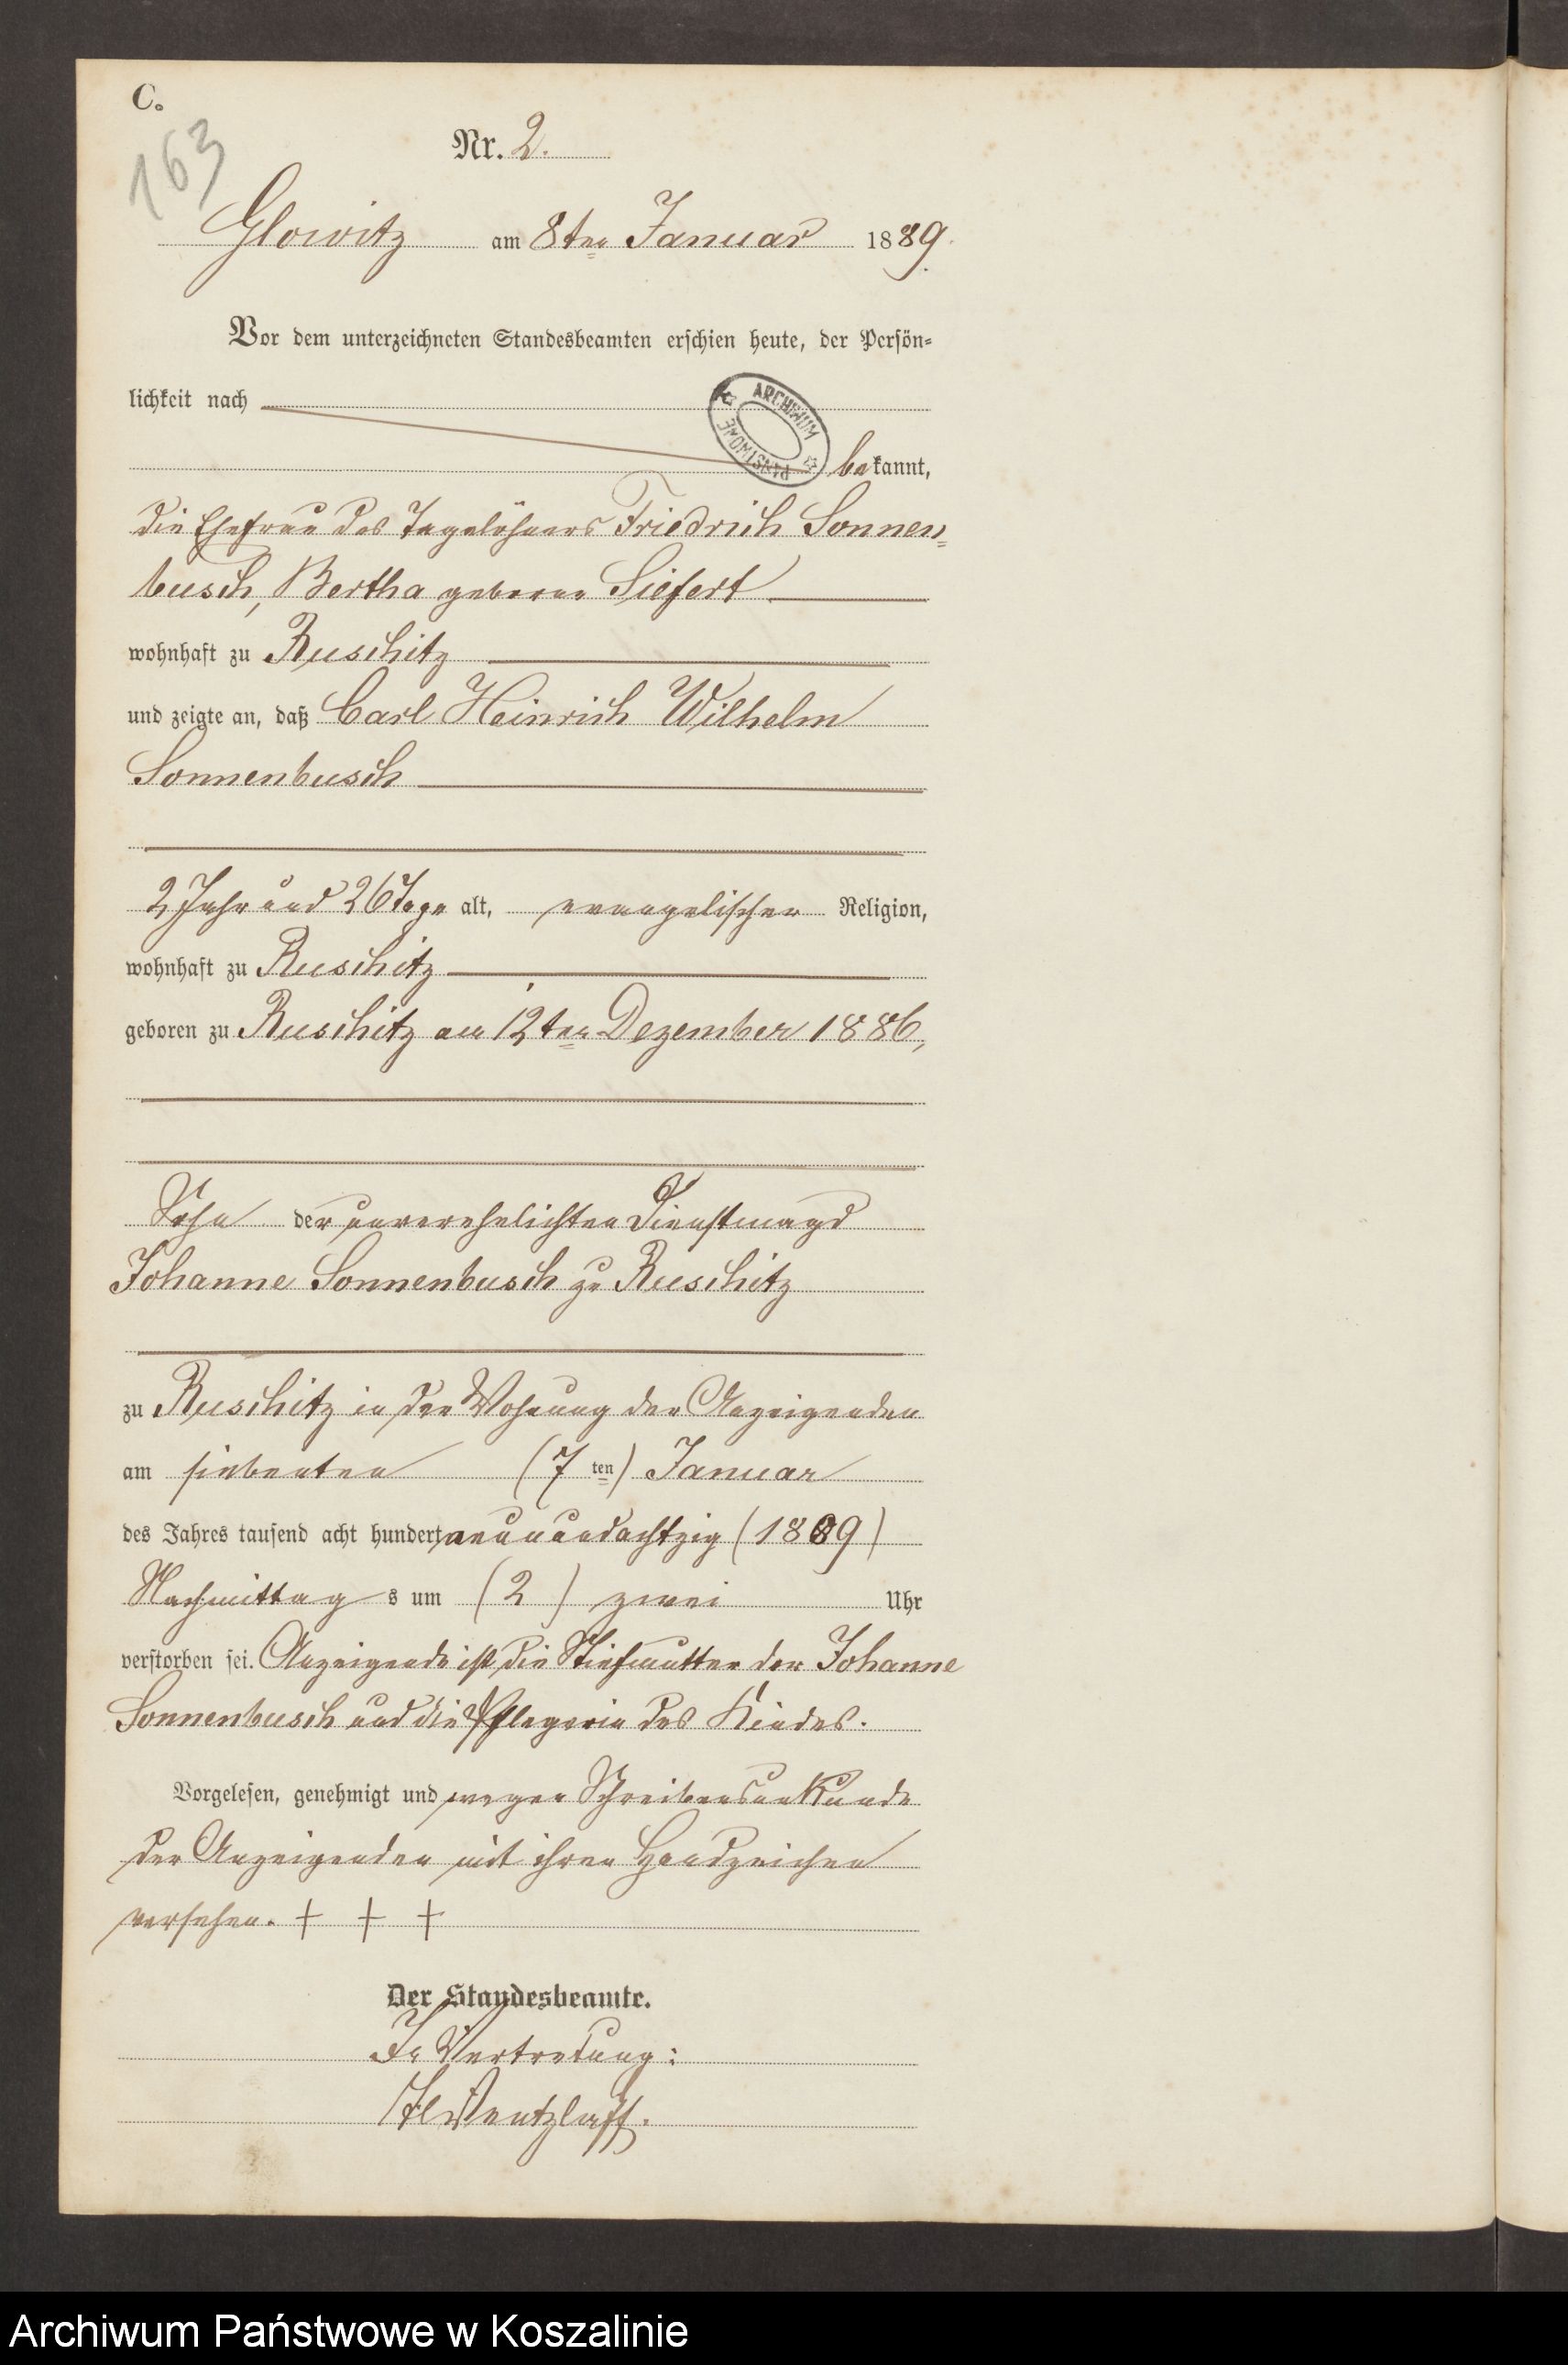 C.
163
Nr. 2.
Glowitz am 8ten Januar 1889.
Vor dem unterzeichneten Standesbeamten erschien heute, der Persön-
lichkeit nach
ARCHIWUM PAŃSTWOWE
bekannt,
die Ehefrau des Tagelöhners Friedrich Sonnen-
busch, Bertha geborne Siefert
wohnhaft zu Ruschitz
und zeigte an, daß Carl Heinrich Wilhelm
Sonnenbusch
2 Jahr und 26 Tage alt, evangelischer Religion,
wohnhaft zu Ruschitz
geboren zu Ruschitz am 12ten Dezember 1886,
Sohn der unverehelichten Dienstmagd
Johanne Sonnenbusch zu Ruschitz
zu Ruschitz in der Wohnung der Anzeigenden
am siebenten (7 ten) Januar
des Jahres tausend acht hundert neunundachtzig (1889)
Nachmittag s um (2) zwei Uhr
verstorben sei. Anzeigende ist die Stiefmutter der Johanne
Sonnenbusch und die Pflegerin des Kindes.
Vorgelesen, genehmigt und wegen Schreibensunkunde
der Anzeigenden mit ihren Handzeichen
versehen. + + +
Der Standesbeamte.
In Vertretung:
Wentzlaff.
Archiwum Państwowe w Koszalinie